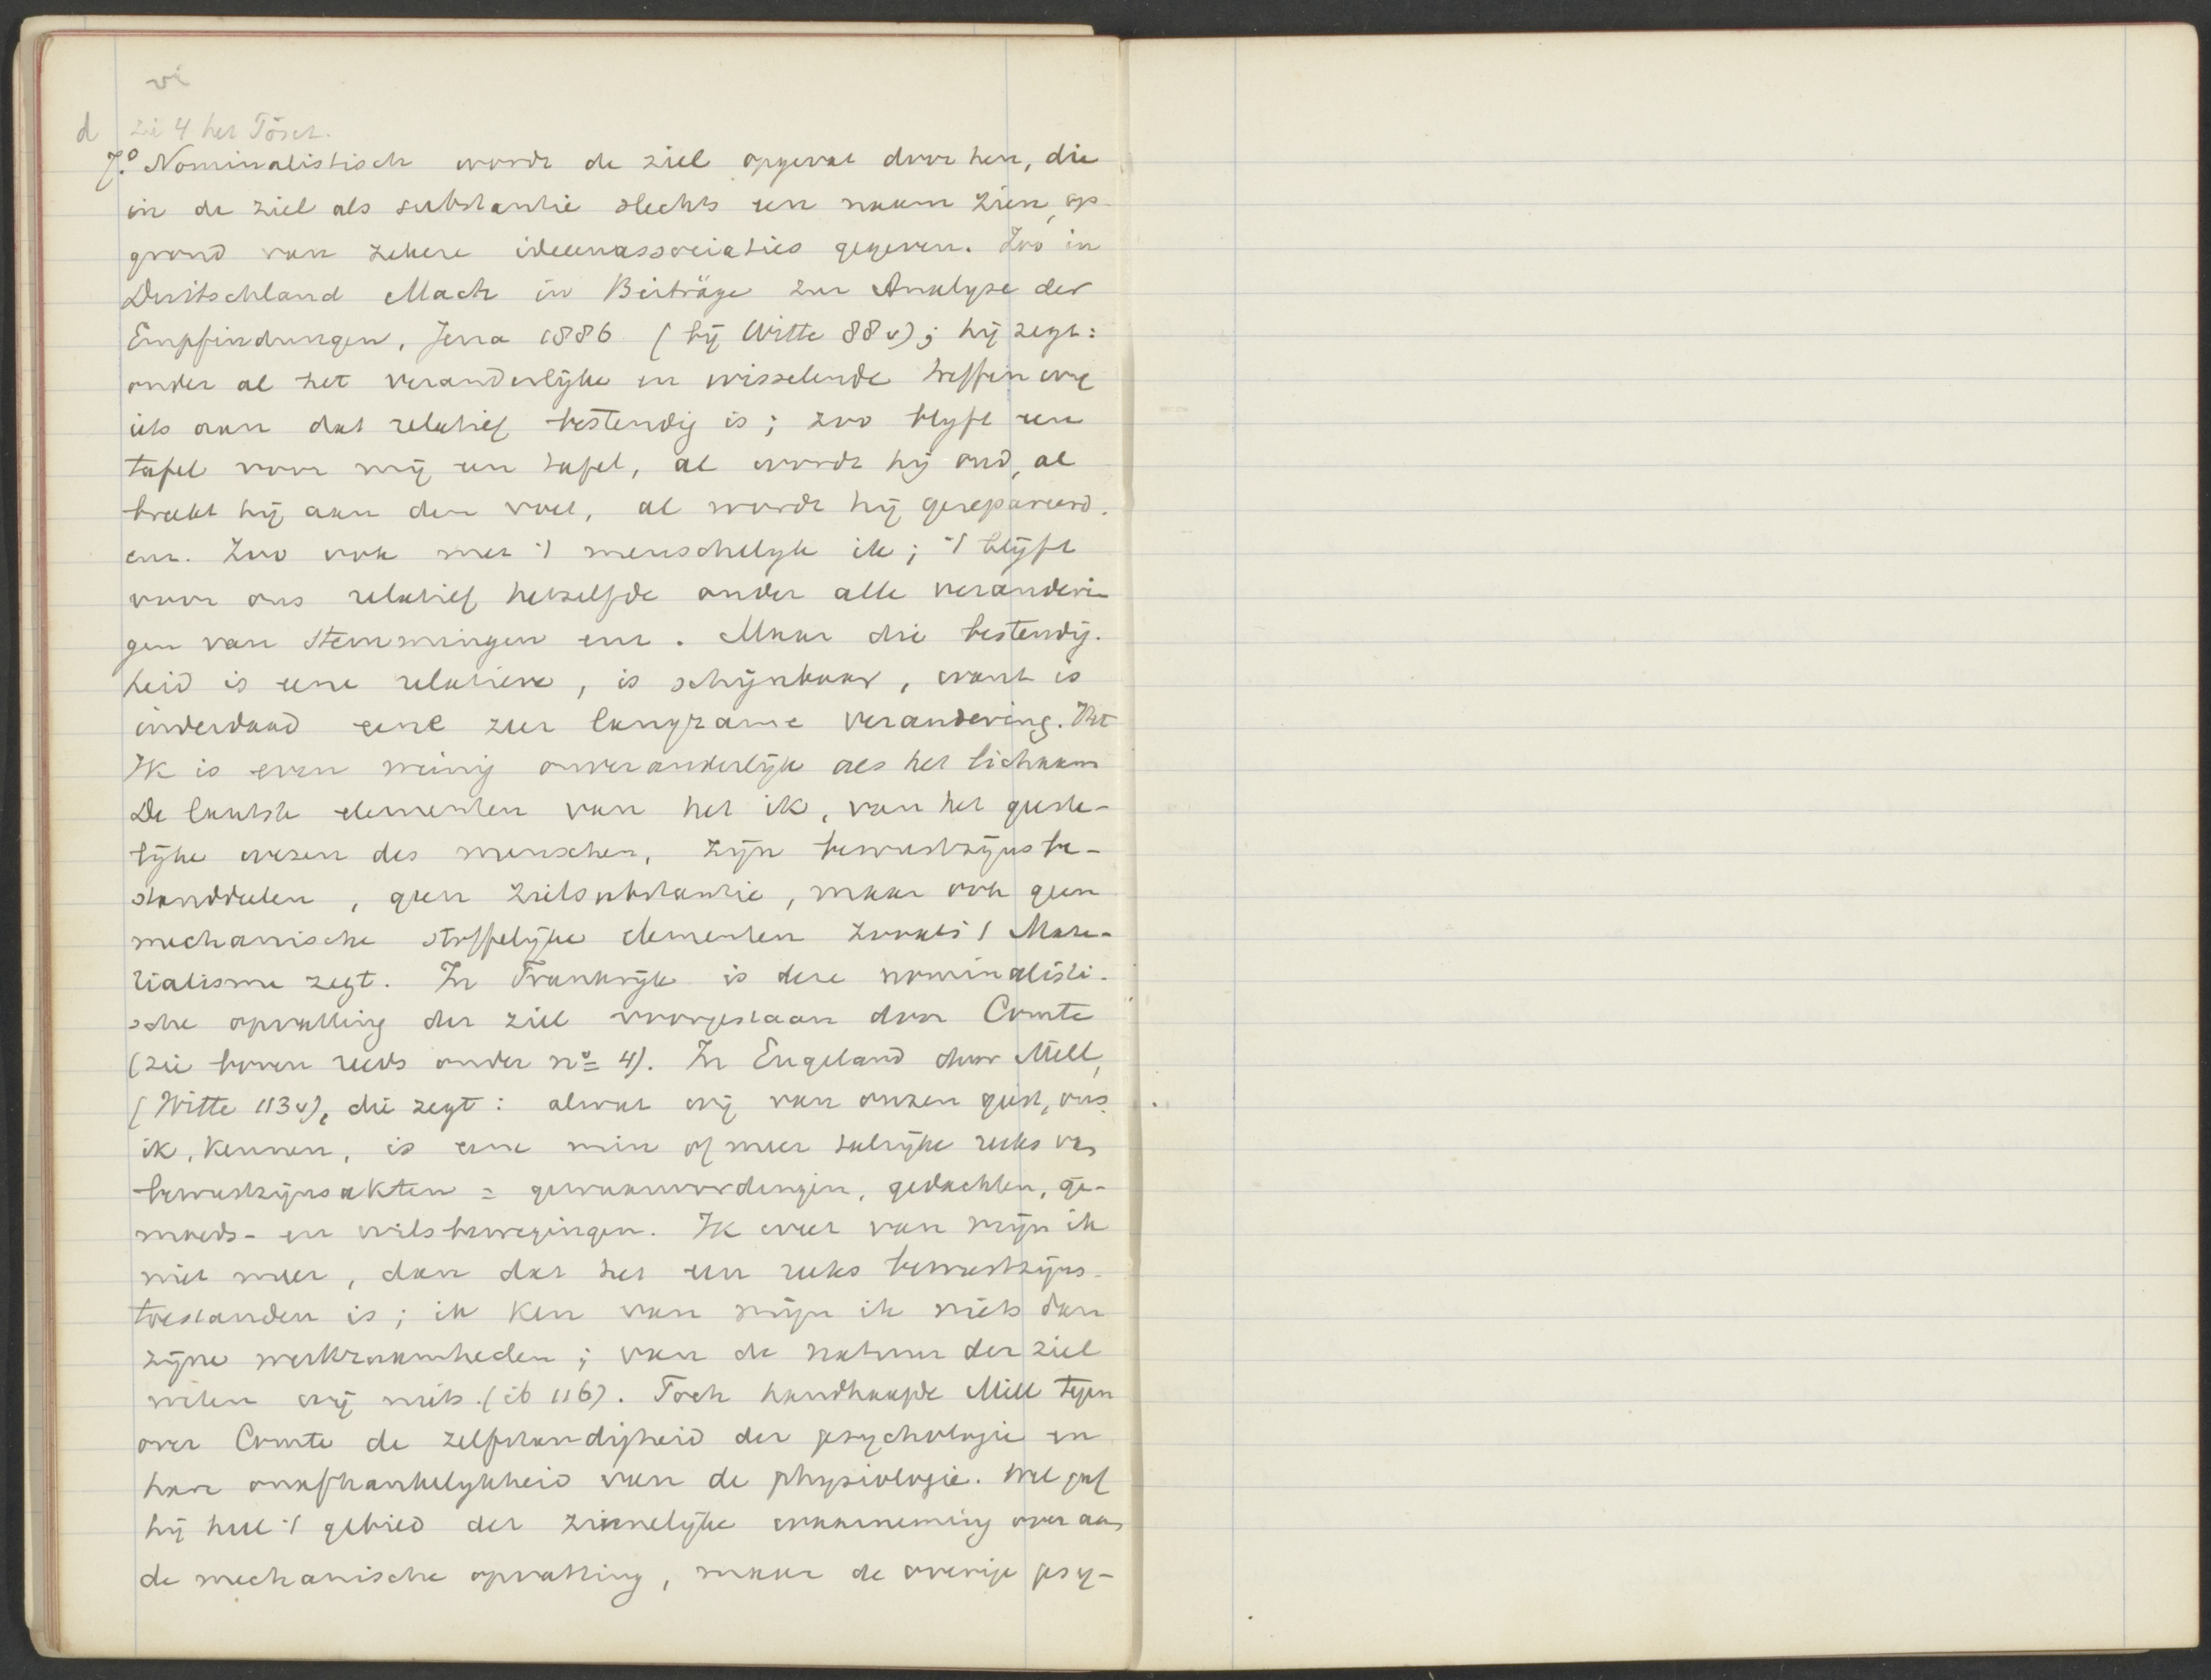 vi
d zie 4 het
7.° Nominalistisch wordt de ziel opgevat door hen, die
in de ziel als substantie slechts een naam zien, op
grond van zekere ideeenassociaties gegeven. Zoo in
Duitschland Mach in Beiträge zur Analyse der
Empfindungen, Jena 1886 (bij Witte 88v); hij zegt:
onder al het veranderlijke en wisselende treffen wij
iets aan dat relatief bestendig is; zoo blijft een
tafel voor mij een tafel, al wordt hij oud, al
breekt hij aan den voet, al wordt hij gerepareerd.
enz. Zoo ook met 't menschelijk ik; 't blijft
voor ons relatief hetzelfde onder alle veranderin
gen van stemmingen enz. Maar die bestendig-
heid is eene relatieve, is schijnbaar, want is
inderdaad eene zeer langzame verandering. Het
Ik is even weinig onveranderlijk als het lichaam
De laatste elementen van het ik, van het geeste-
lijke wezen des menschen, zijn bewustzijnsbe-
standdeelen, geen zielsubstantie, maar ook geen
mechanische stoffelijke elementen zooals 't Mate-
rialisme zegt. In Frankrijk is deze nominalisti-
sche opvatting der ziel voorgestaan door Comte
(zie boven reeds onder n° 4). In Engeland door Mill,
(Witte 113v), die zegt: alwat wij van onzen geest, ons
ik, kennen, is eene min of meer talrijke reeks van
bewustzijnsakten = gewaarwordingen, gedachten, ge-
moeds- en wilsbewegingen. Ik weet van mijn ik
niet meer, dan dat het een reeks bewustzijns-
toestanden is; ik ken van mijn ik niets dan
zijne werkzaamheden; van de natuur der ziel
weten wij niets. (ib 116). Toch handhaafde Mill tegen
over Comte de zelfstandigheid der psychologie en
hare onafhankelijkheid van de physiologie. Wel gaf
hij heel 't gebied der zinnelijke waarneming over aan
de mechanische opvatting, maar de overige psy-